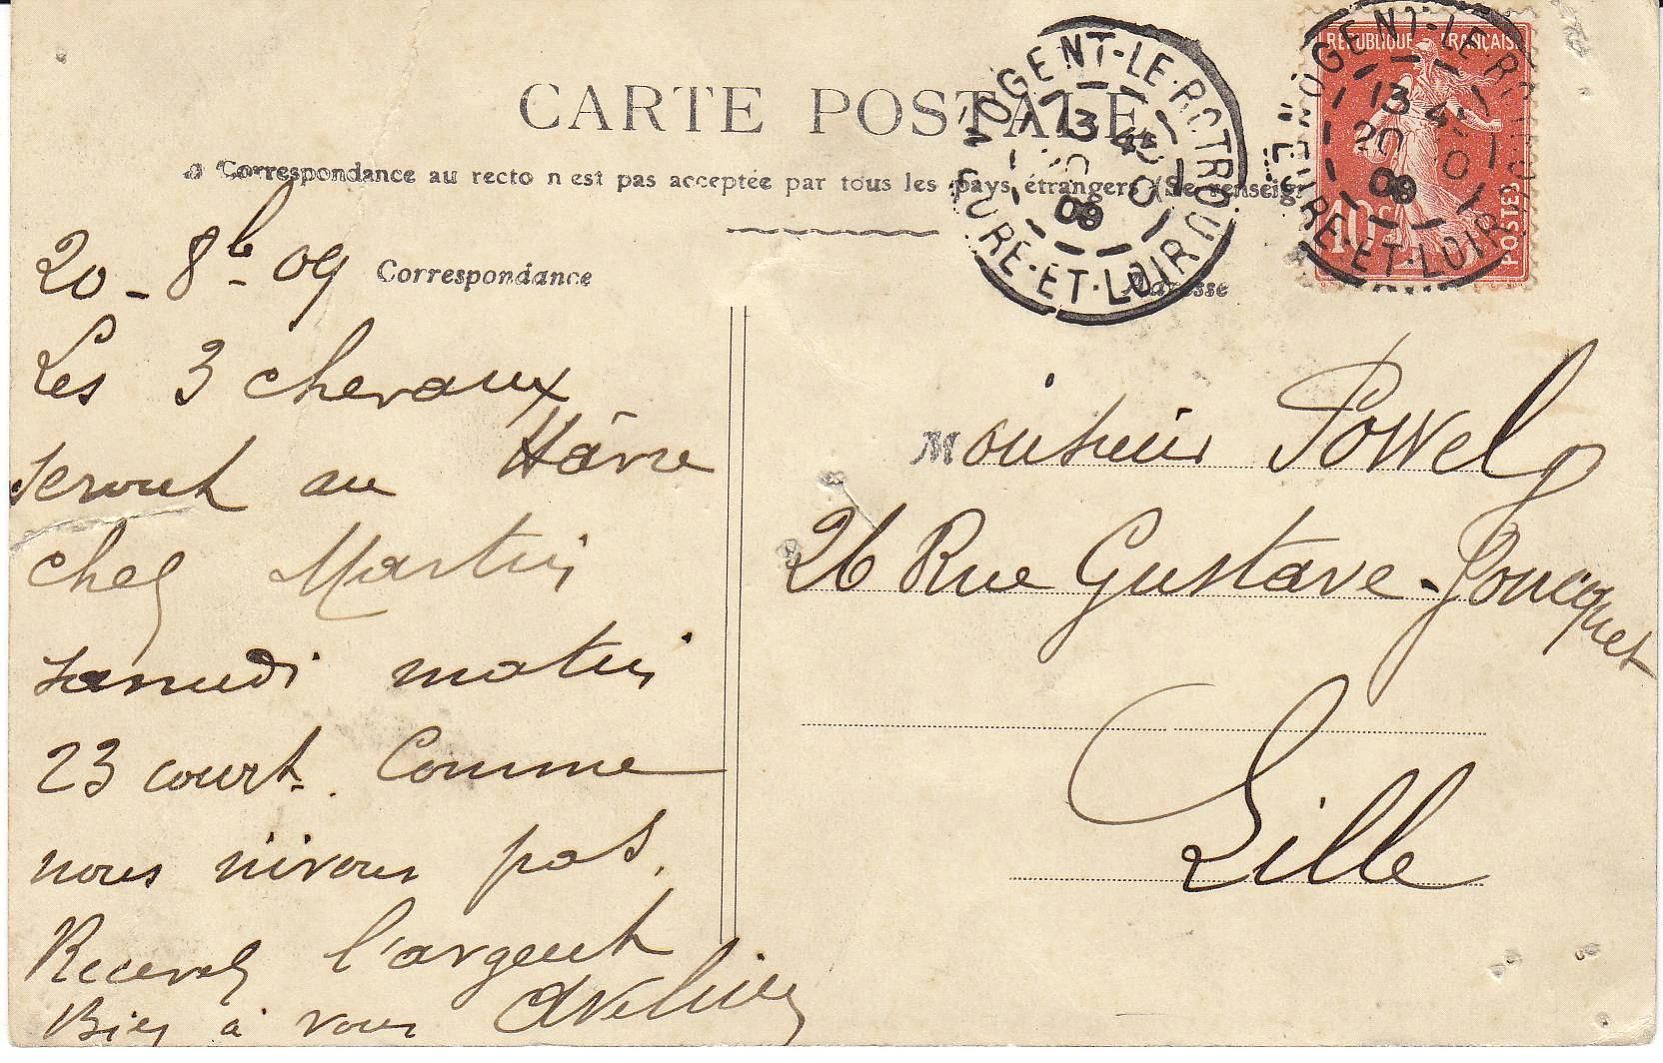 CARTE POSTALE
Correspondance au recto n est pas acceptée par tous les pays étrangers (Se renseig
NOGENT-LE-ROTROU
13 45
20 10
09
EURE-ET-LOIR
NOGENT-LE-ROTROU
13 45
20 10
09
EURE-ET-LOIR
REPUBLIQUE FRANÇAISE
10c
POSTES
20 - 8b - 09
Correspondance
Adresse
Les 3 chevaux
seront au Hâvre
chez Martin
samedi matin
23 court. Comme
nous n'irons pas,
Recevez l'argent
Bien à vous
Monsieur Powel
26 Rue Gustave-
Lille